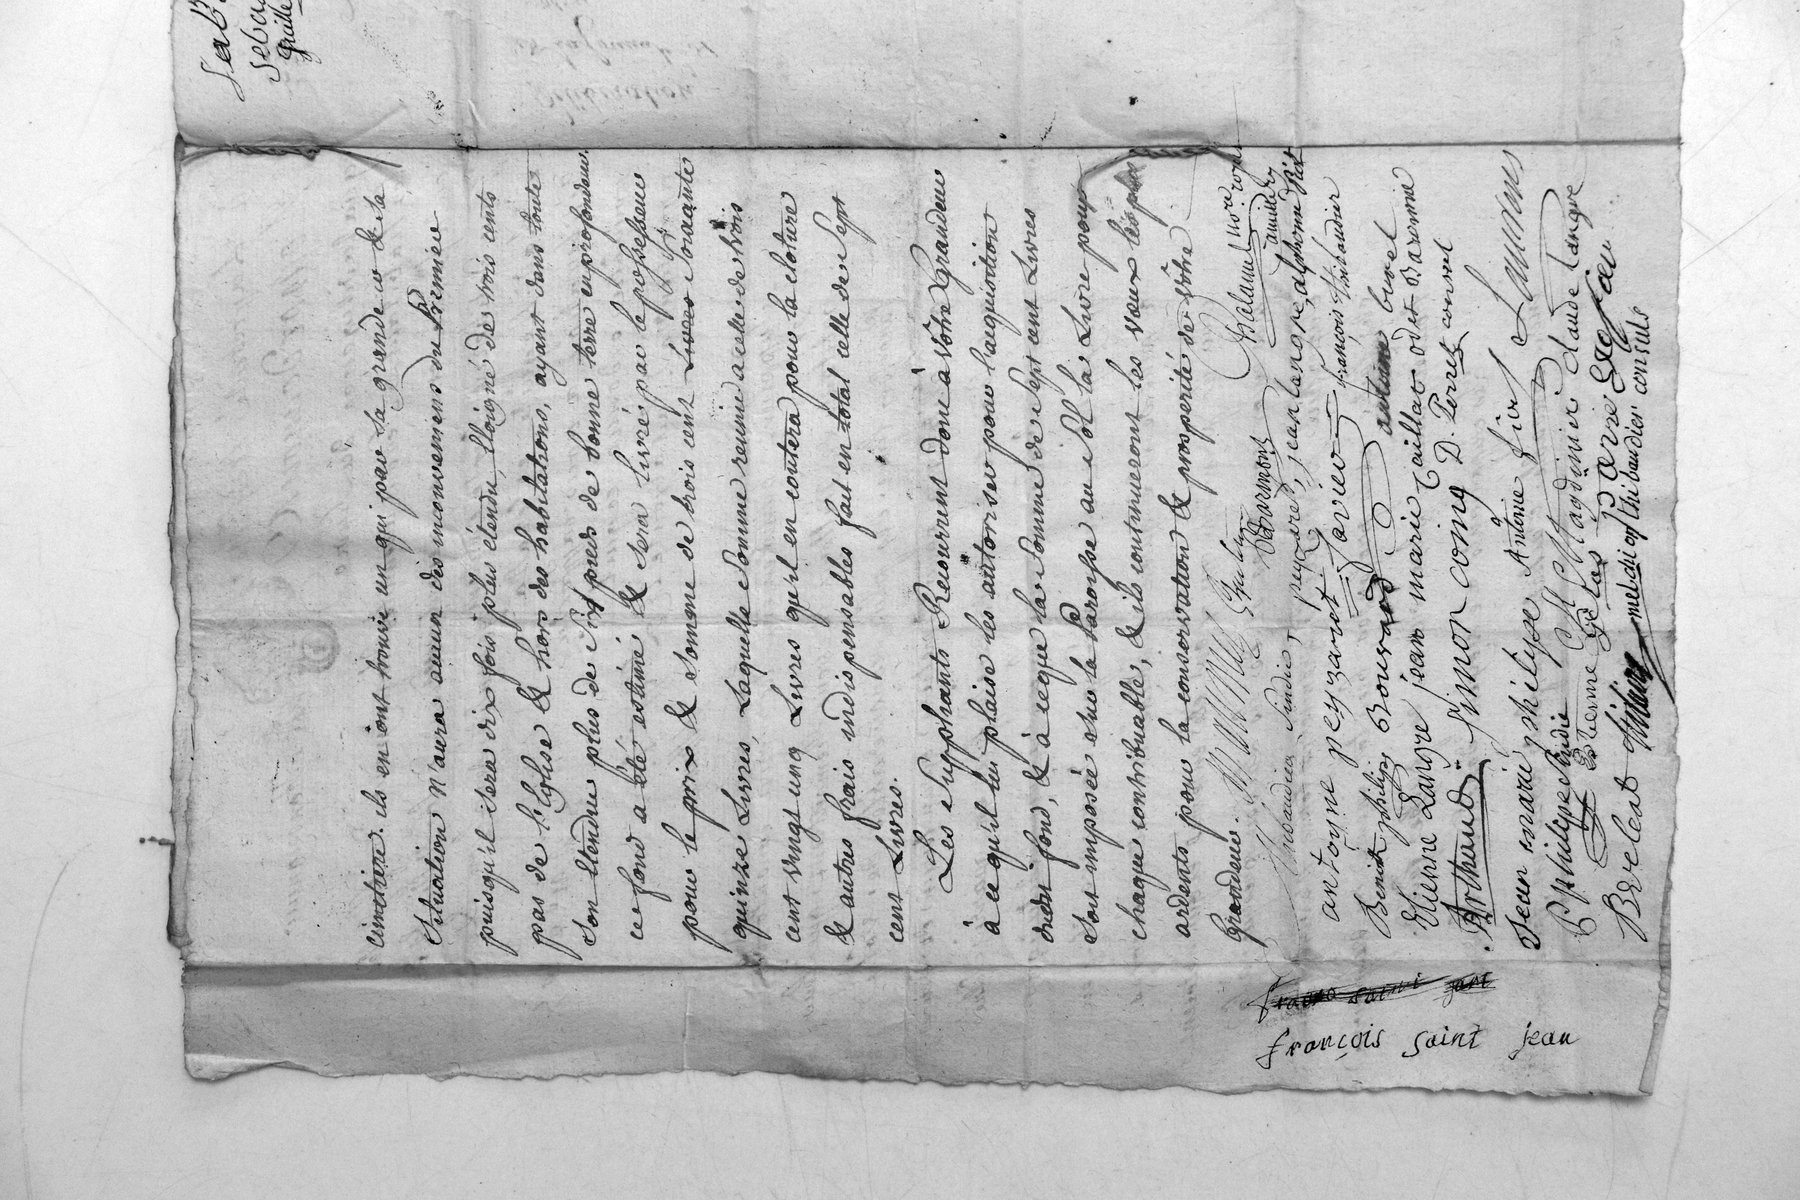 cimetière. ils en ont trouvé un qui par sa grandeur & sa
situation n'aura aucun des inconveniens du Premier
puisqu'il sera dix fois plus étendu, éloigné de trois cents
pas de l'Eglise & hors des habitations, ayant dans toute
son étendue plus de six pieds de bonne terre en profondeur.
ce fond a été estimé & sera livré par le possesseur
pour le prix & somme de trois cent Livres soixante
quinze Livres, Laquelle somme reunie a celle de trois
cent vingt cinq Livres qu'il en coutera pour la cloture
& autres frais indispensables fait en total celle de sept
cent Livres.
Les Suppliants Recourrent donc à Vôtre Grandeur
à ce qu'il lui plaise les autoriser pour l'acquisition
dudit fond, & à ce que la somme de sept cent Livres
soit imposée sur la Paroisse au sol la Livre pour
chaque contribuable, & ils continueront les vœux les plus
ardents pour la conservation & prosperité de Vôtre
Grandeur.
Thibaudier Sindic, peyzaret, jean langre, alphonse
antoyne peyzaret françois thibaudier
Benoit philipe Bouvard antoine burel
Etienne Langre jean marie Caillat odet Baronnie
Arthaud Simon coing D. Perret consul
Jean marie philipe Antoine
P philipe Sindic Magdinier claude Langre
Etienne
Brelat thibaudier consuls
françois saint jean